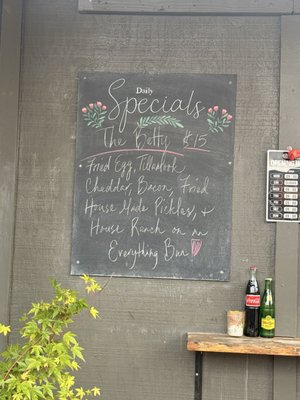 Daily
Specials
The Betty $15
Fried Egg, Tillamook
Cheddar, Bacon, Fried
House Made Pickles, +
House Ranch on an
Everything Bun
Coca-Cola